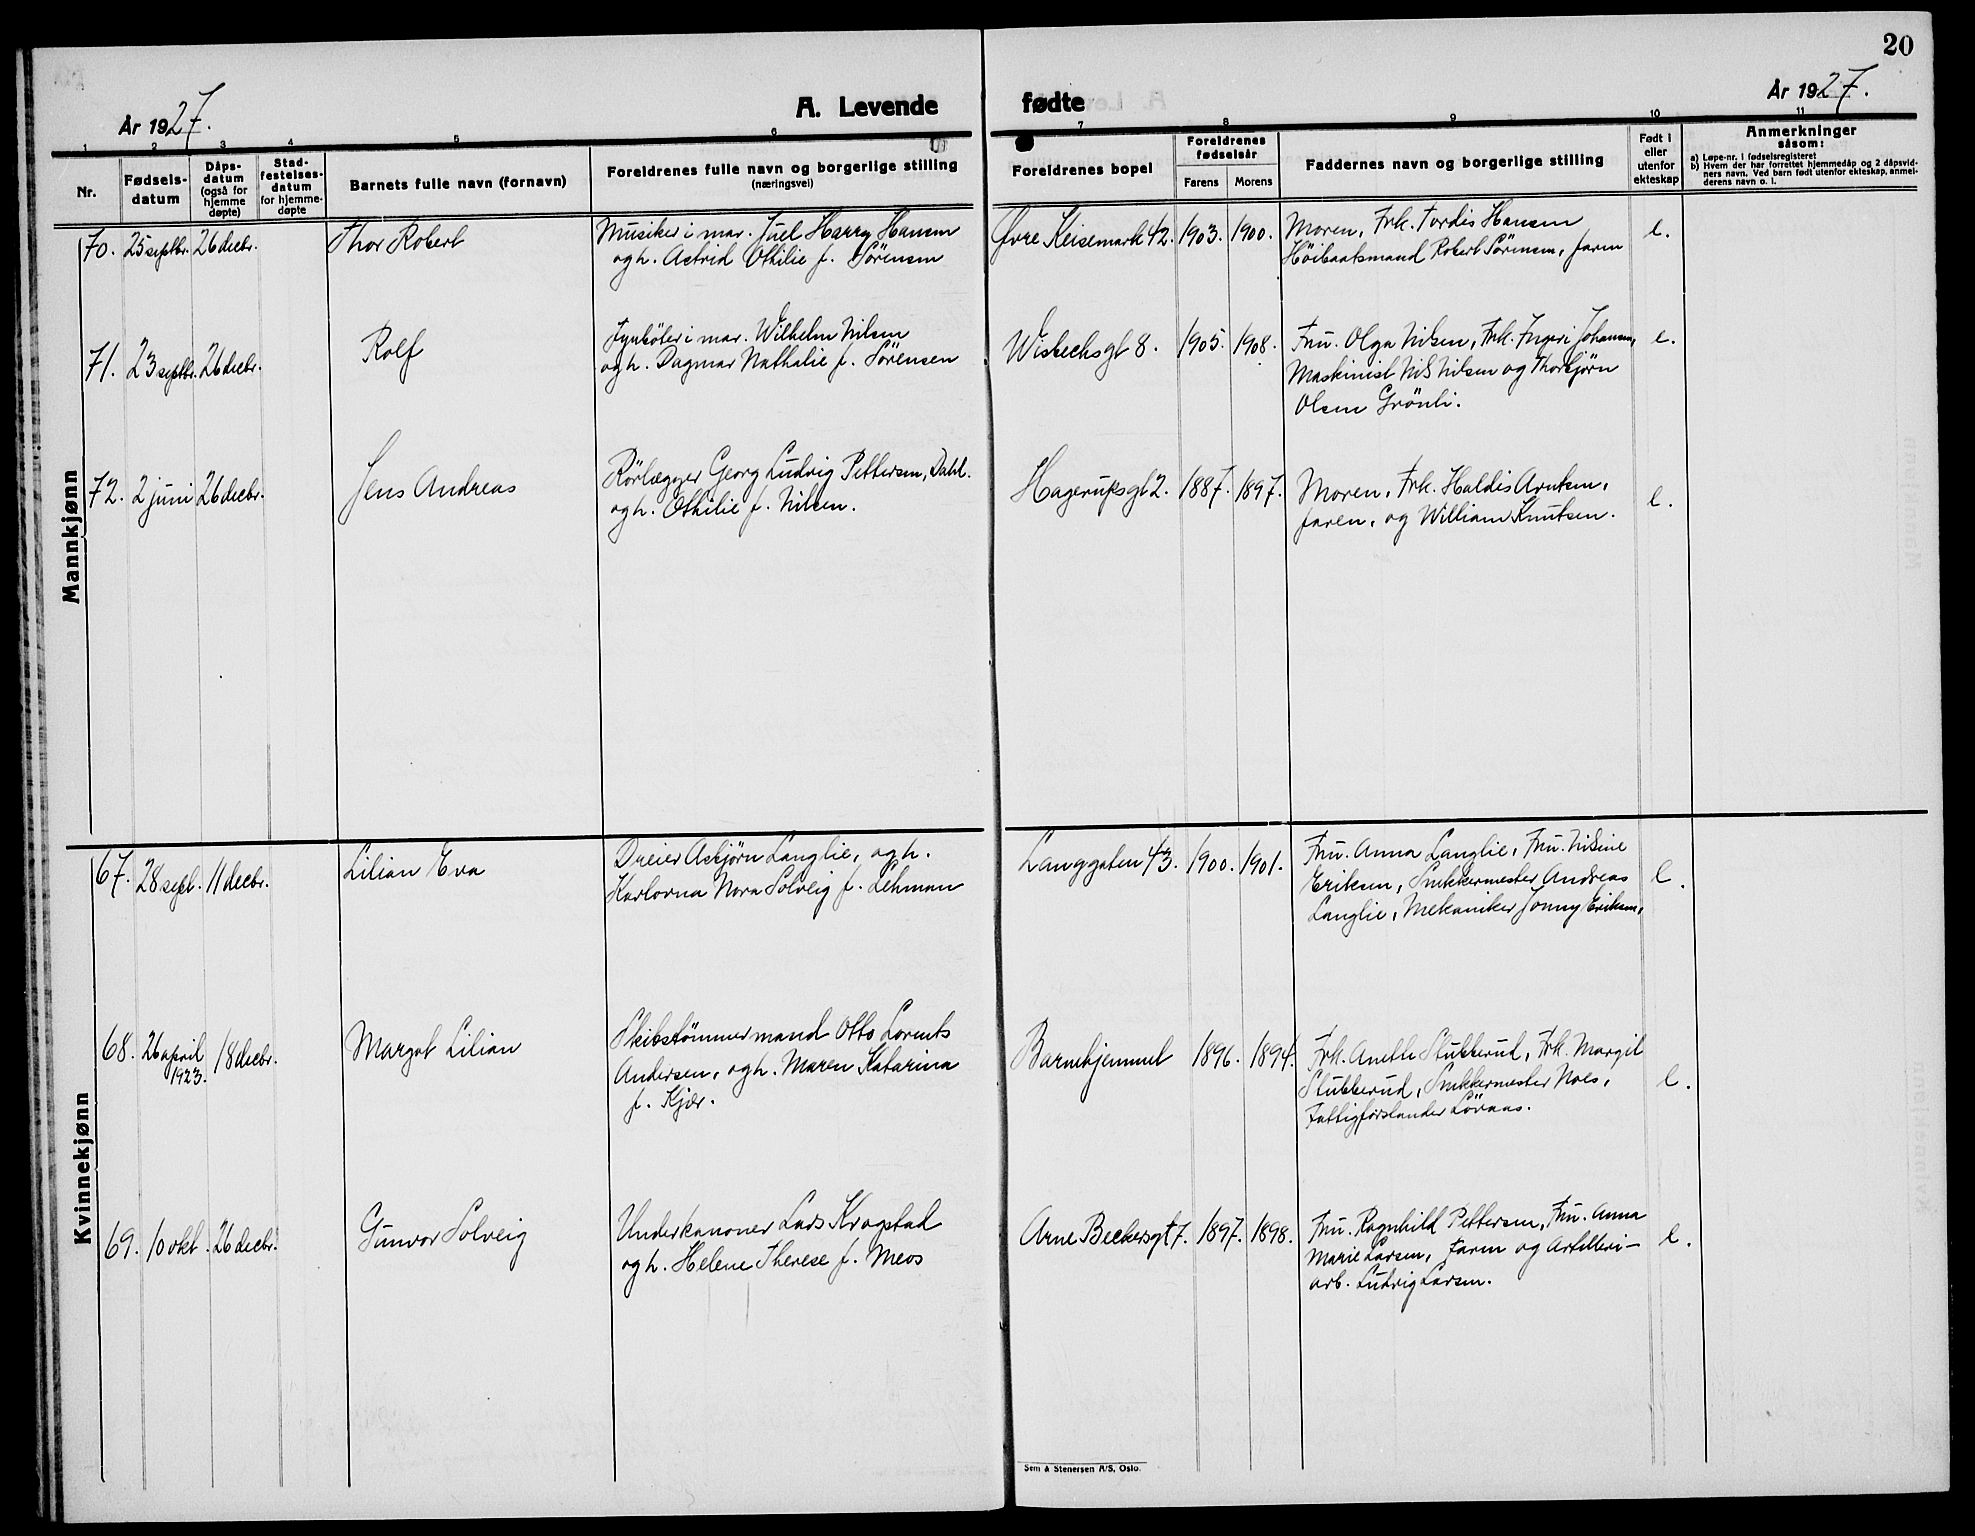 20
År 1927.
A. Levende
fødte
År 1927.
1 2 3 4 5 6 7 8 9 10 11
Nr.
Fødsels-
datum
Dåps-
datum
(også for
hjemme
døpte)
Stad-
festelses-
datum
for hjemme-
døpte
Barnets fulle navn (fornavn)
Foreldrenes fulle navn og borgerlige stilling
(næringsvei)
Foreldrenes bopel
Foreldrenes
fødselsår
Farens
Morens
Faddernes navn og borgerlige stilling
Født i
eller
utenfor
ekteskap
Anmerkninger
såsom:
a) Løpe-nr. i fødselsregisteret
b) Hvem der har forrettet hjemmedåp og 2 dåpsvid-
ners navn. Ved barn født utenfor ekteskap, anmel-
derens navn o. l.
Mannkjønn
70. 25 septbr. 26 decbr. Thor Robert
Musiker i mar. Juel Harry Hansen
og h. Astrid Othilie f. Sörensen
Øvre Keisemark 42. 1903. 1900.
Moren, Frk. Tordis Hansen
Höibaatsmand Robert Sörensen, faren
e.
71. 23 septbr. 26 decbr. Rolf
Fyrböter i mar. Wilhelm Nilsen
og h. Dagmar Nathalie f. Sörensen
Wistechsgt 8. 1905. 1908.
Fru. Olga Nilsen, Frk. Ingeri Johansen,
Maskinist Nils Nilsen og Thorbjørn
Olsen Grönli.
e.
72. 2 juni 26 decbr. Jens Andreas
Rörlægger Georg Ludvig Pettersen, Dahl.
og h. Othilie f. Nilsen.
Hagerupsgt 2. 1887. 1897.
Moren, Frk. Haldis Arntsen,
faren, og William Knutsen.
e.
Kvinnekjønn
67. 28 sept. 11 decbr. Lilian Eva
Dreier Asbjørn Langlie, og h.
Karlovna Nora Solveig f. Lehman
Langgaten 43. 1900. 1901.
Fru. Anna Langlie, Fru. Nisine
Eriksen, Snekkermester Andreas
Langlie, Mekaniker Jonny Eriksen,
e.
68. 26 april 18 decbr. Margot Lilian
1923.
Skibstømmermand Otto Lorents
Andersen, og h. Maren Katarina
f. Kjær.
Barnehjemmet 1896. 1894.
Frk. Anette Stubberud, Frk. Margit
Stubberud, Snekkermester Noes,
Fattigforstander Lövaas.
e.
69. 10 okt. 26 decbr. Gunvor Solveig
Underkanoner Lars Krogstad
og h. Helene Therese f. Meos
Arne Beckersgt 7. 1897. 1898.
Fru. Ragnhild Pettersen, Fru. Anna
Marie Larsen, Faren og Artilleri-
arb. Ludvig Larsen.
e.
Sem & Stenersen A/S, Oslo.